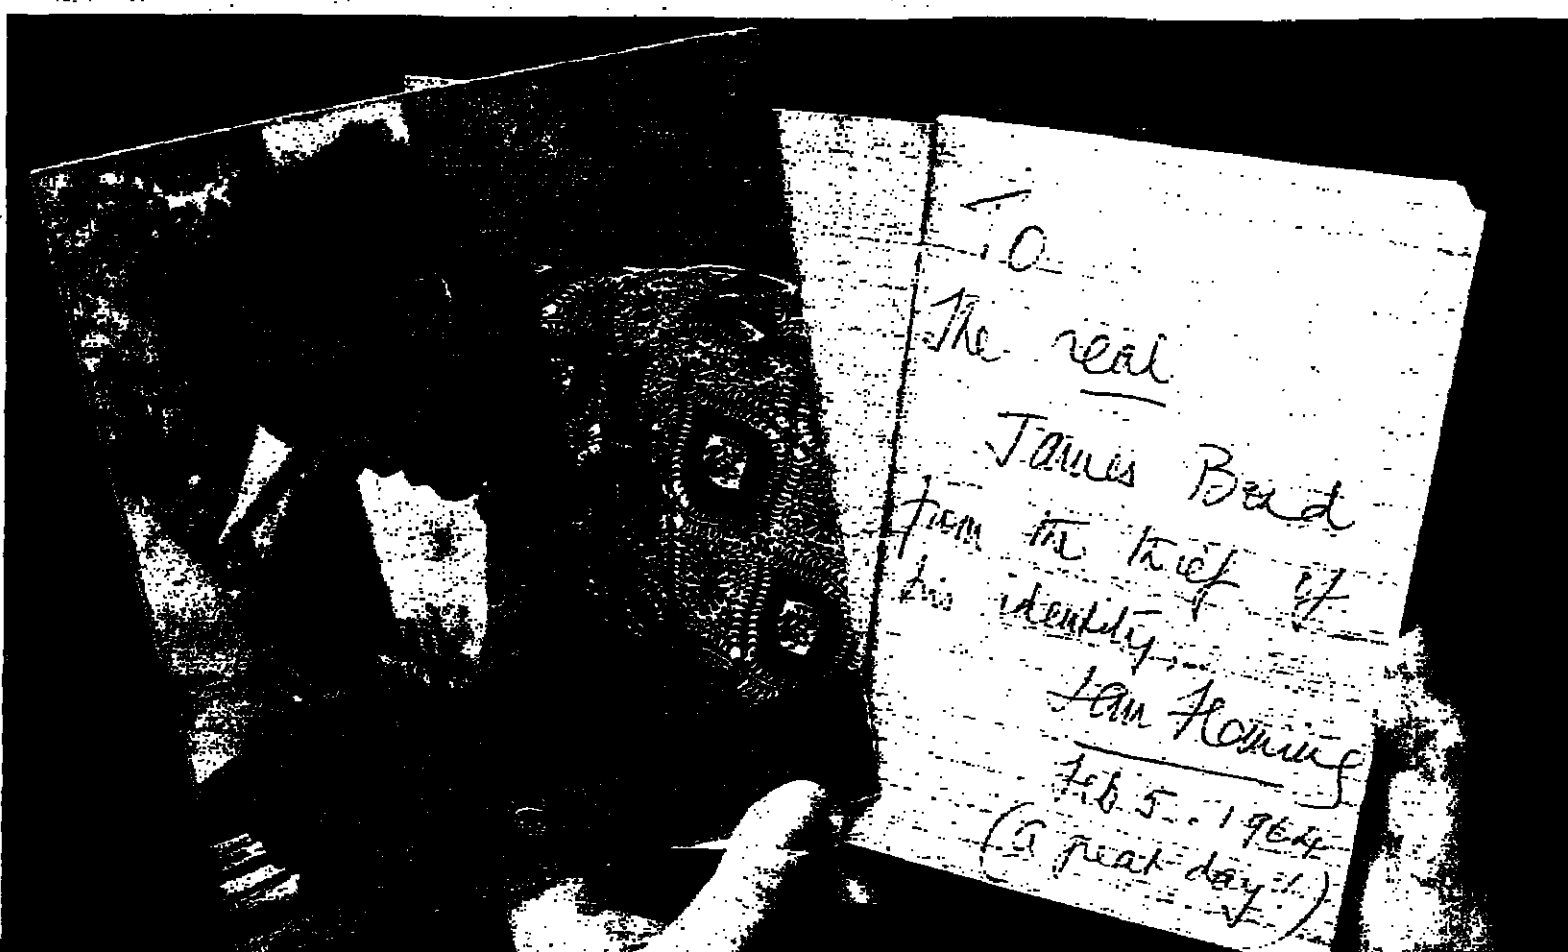 To
The real
James Bond
from the thief of
his identity,
Ian Fleming
Feb 5. 1964
(a great day!)